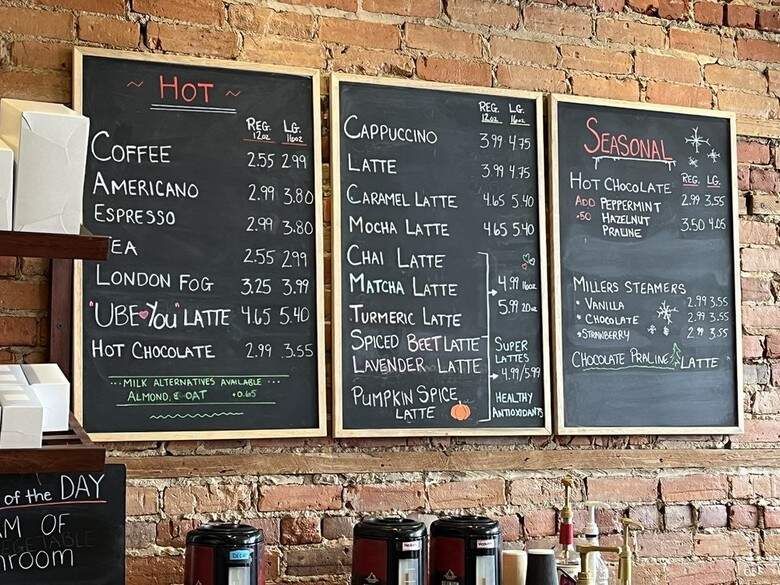 ~ HOT ~
REG. LG.
12oz 16oz
COFFEE 2.55 2.99
AMERICANO 2.99 3.80
ESPRESSO 2.99 3.80
EA 2.55 2.99
LONDON FOG 3.25 3.99
"UBE YOU" LATTE 4.65 5.40
HOT CHOCOLATE 2.99 3.55
... MILK ALTERNATIVES AVAILABLE ...
ALMOND, & OAT +0.65
REG. LG.
12oz 16oz
CAPPUCCINO 3.99 4.75
LATTE 3.99 4.75
CARAMEL LATTE 4.65 5.40
MOCHA LATTE 4.65 5.40
CHAI LATTE
MATCHA LATTE 4.99 16oz
TURMERIC LATTE 5.99 20oz
SPICED BEET LATTE
LAVENDER LATTE
SUPER
LATTES
4.99/5.99
PUMPKIN SPICE
LATTE
HEALTHY
ANTIOXIDANTS
SEASONAL
REG. LG.
HOT CHOCOLATE 2.99 3.55
ADD PEPPERMINT
.50 HAZELNUT 3.50 4.05
PRALINE
MILLERS STEAMERS
• VANILLA 2.99 3.55
• CHOCOLATE 2.99 3.55
• STRAWBERRY 3.55
CHOCOLATE PRALINE LATTE
of the DAY
M OF
room